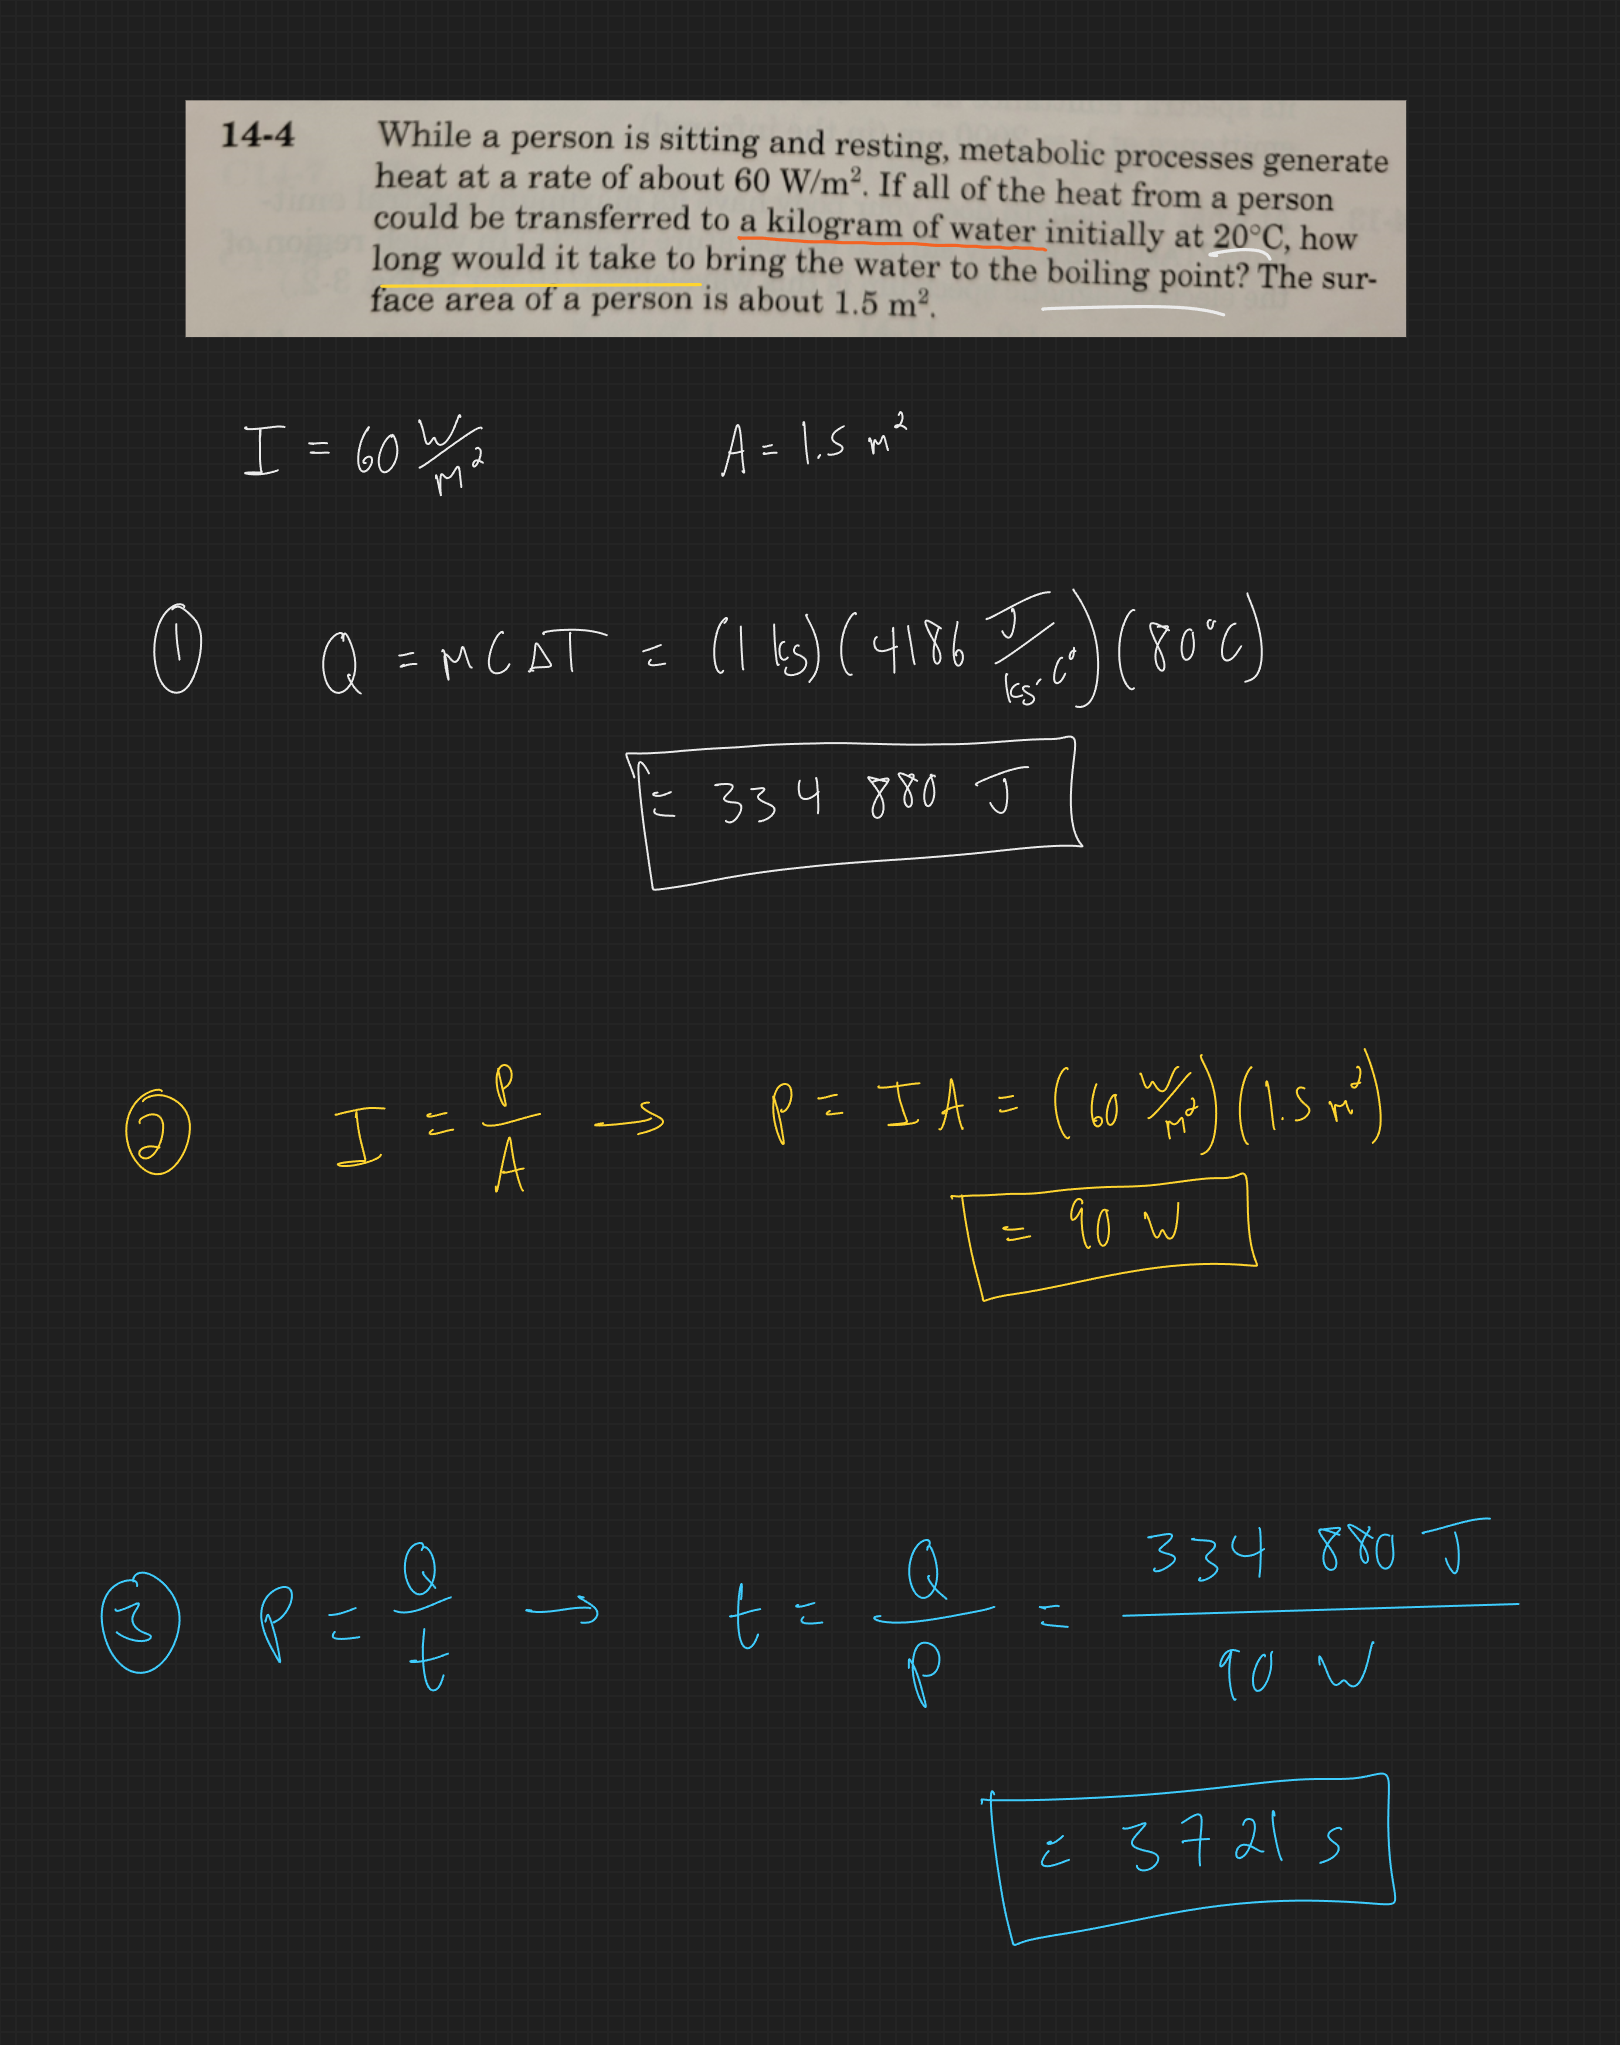 14-4 While a person is sitting and resting, metabolic processes generate
heat at a rate of about 60 W/m². If all of the heat from a person
could be transferred to a kilogram of water initially at 20°C, how
long would it take to bring the water to the boiling point? The sur-
face area of a person is about 1.5 m².
I = 60 W/m² A = 1.5 m²
① Q = mCΔT = (1 kg)(4186 J/kg·C°)(80°C)
= 334 880 J
② I = P/A → P = IA = (60 W/m²)(1.5 m²)
= 90 W
③ P = Q/t → t = Q/P = 334 880 J / 90 W
= 3721 s